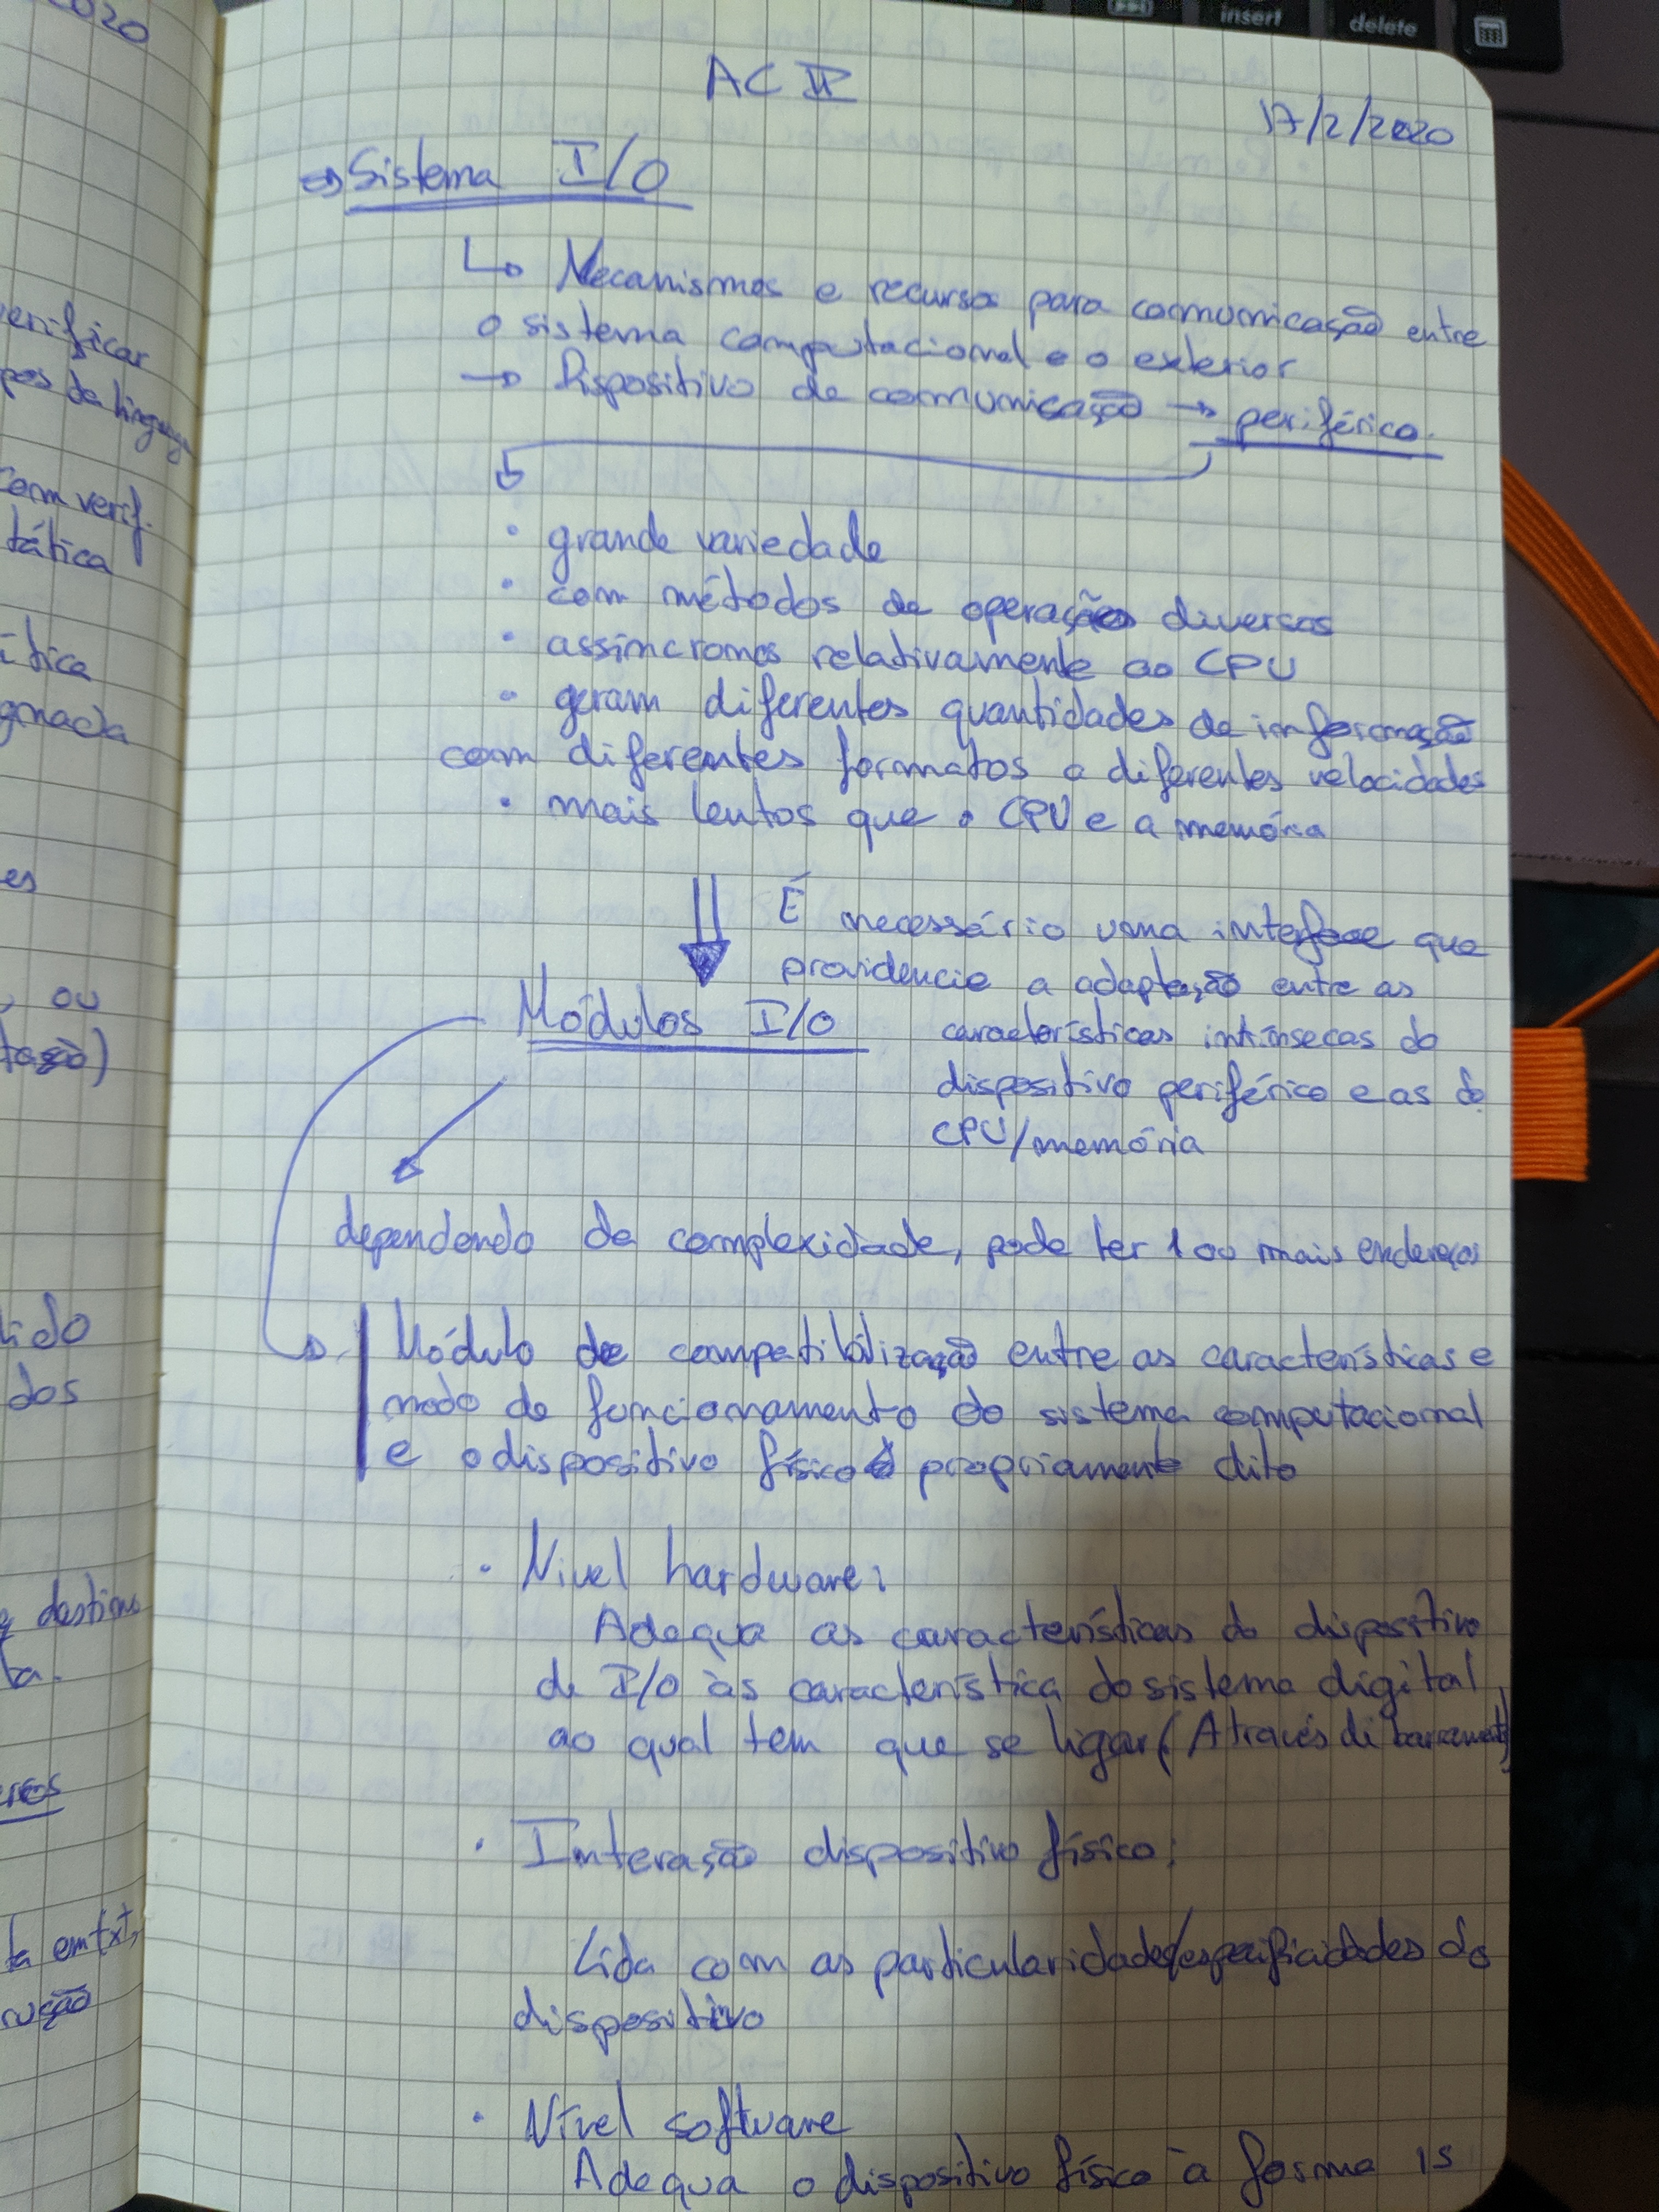 2020
erificar
pos de linguag
com verif.
tática
ítica
gnada
es
, ou
tação)
tido
dos
destino
ta.
eros
ta em txt,
rução
insert
delete
AC II
17/2/2020
⇒ Sistema I/O
↳ Mecanismos e recursos para comunicação entre
o sistema computacional e o exterior
→ Dispositivo de comunicação → periférico.
· grande variedade
· com métodos de operação diversos
· assíncronos relativamente ao CPU
· geram diferentes quantidades de informação
com diferentes formatos a diferentes velocidades
· mais lentos que o CPU e a memória
É necessário uma interface que
providencie a adaptação entre as
características intrínsecas do
dispositivo periférico e as do
CPU/memória
Módulos I/O
dependendo da complexidade, pode ter 1 ou mais endereços
Módulo de compatibilização entre as características e
modo de funcionamento do sistema computacional
e o dispositivo físico propriamente dito
· Nível hardware:
Adequa as características do dispositivo
de I/O às característica do sistema digital
ao qual tem que se ligar (Através de barramento)
· Interação dispositivo físico:
Lida com as particularidades/especificidades do
dispositivo
· Nível software
Adequa o dispositivo físico à forma
15